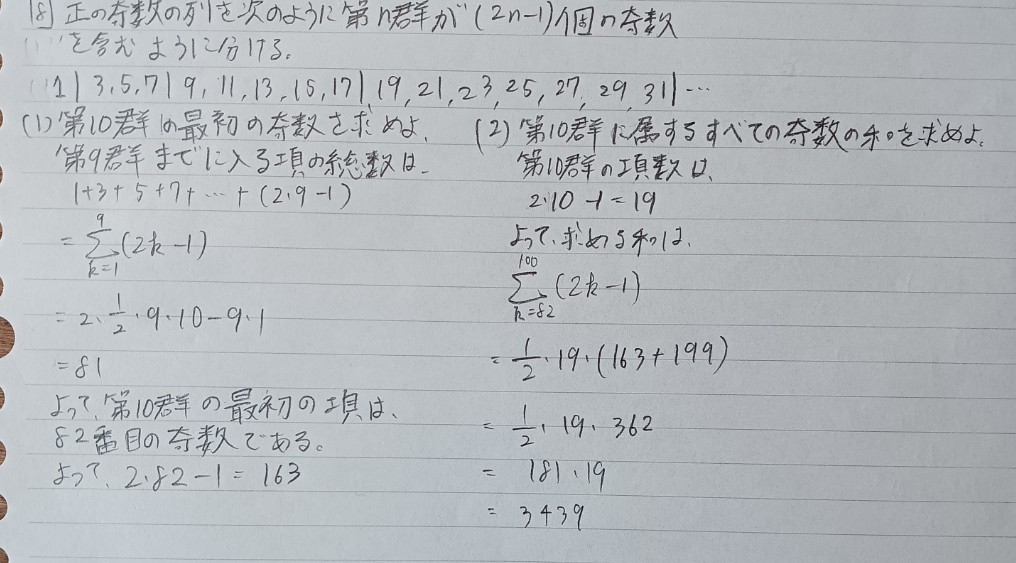 18 正の奇数の列を次のように第n群が(2n-1)個の奇数
を含むように分ける。
1 | 3, 5, 7 | 9, 11, 13, 15, 17 | 19, 21, 23, 25, 27, 29, 31 | ...
(1) 第10群の最初の奇数を求めよ.
第9群までに入る項の総数は、
1+3+5+7+ ... +(2・9-1)
= Σ_{k=1}^{9} (2k-1)
= 2・1/2・9・10-9・1
= 81
よって、第10群の最初の項は、
82番目の奇数である。
よって、2・82-1=163
(2) 第10群に属するすべての奇数の和を求めよ.
第10群の項数は、
2・10-1=19
よって、求める和は、
Σ_{k=82}^{100} (2k-1)
= 1/2・19・(163+199)
= 1/2・19・362
= 181・19
= 3439